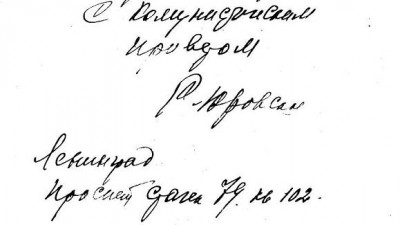 С Комунистическим
приветом
Р. Юровская
Ленинград
Проспект Стачек 79. кв 102.